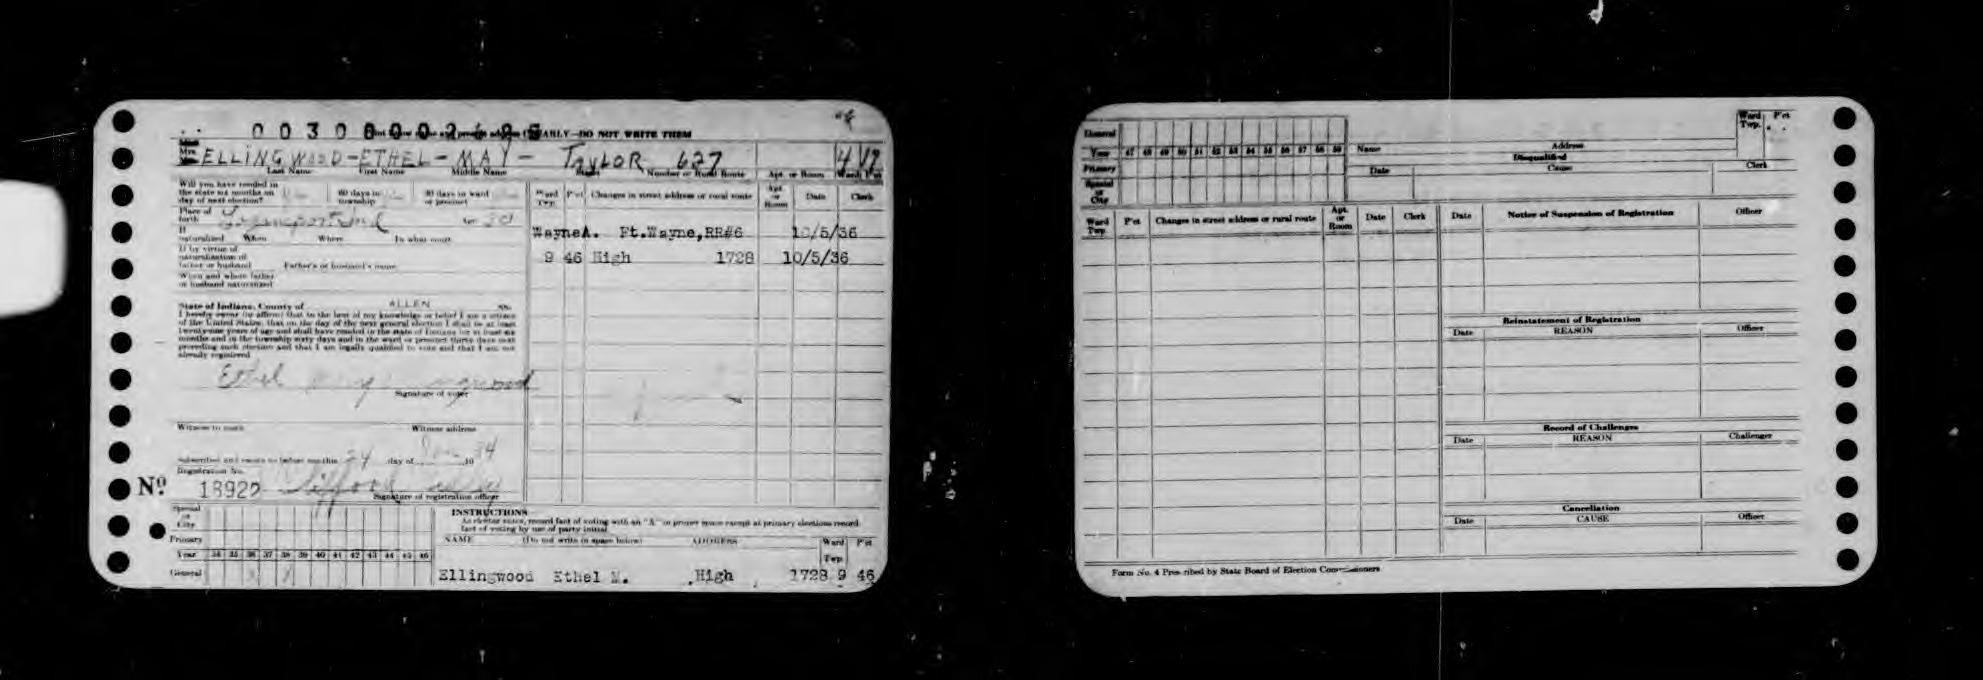 CLEARLY—DO NOT WRITE THEM
Mrs. ELLINGWOOD-ETHEL-MAY- TAYLOR 627
Last Name First Name Middle Name Street Number or Rural Route Apt. or Room Ward Pct
Will you have resided in
the state six months on
day of next election?
60 days in
township
30 days in ward
or precinct
Place of
birth Age
If
naturalized When Where In what court
If by virtue of
naturalization of
father or husband Father's or husband's name
When and where father
or husband naturalized
State of Indiana, County of ALLEN ss:
I hereby swear (or affirm) that to the best of my knowledge or belief I am a citizen
of the United States; that on the day of the next general election I shall be at least
twenty-one years of age and shall have resided in the state of Indiana for at least six
months and in the township sixty days and in the ward or precinct thirty days next
preceding such election and that I am legally qualified to vote and that I am not
already registered
Ethel
Signature of voter
Witness to mark Witness address
Subscribed and sworn to before me this 24 day of 19 34
Registration No.
No. 18922
Signature of registration officer
Ward
Twp. P'ct Changes in street address or rural route Apt.
or
Room Date Clerk
Wayne A. Ft.Wayne,RR#6 10/5/36
9 46 High 1728 10/5/36
Special
or
City
Primary
Year 34 35 36 37 38 39 40 41 42 43 44 45 46
General
INSTRUCTIONS
As elector votes, record fact of voting with an "A" in proper space except at primary elections record
fact of voting by use of party initial
NAME (Do not write in space below) ADDRESS Ward
Twp. P'ct
Ellingwood Ethel M. High 1728 9 46
General
Year 47 48 49 50 51 52 53 54 55 56 57 58 59
Primary
Special
or
City
Name Address Ward
Twp. P'ct
Disqualified
Date Cause Clerk
Ward
Twp. P'ct Changes in street address or rural route Apt.
or
Room Date Clerk
Date Notice of Suspension of Registration Officer
Reinstatement of Registration
Date REASON Officer
Record of Challenges
Date REASON Challenger
Cancellation
Date CAUSE Officer
Form No. 4 Prescribed by State Board of Election Commissioners